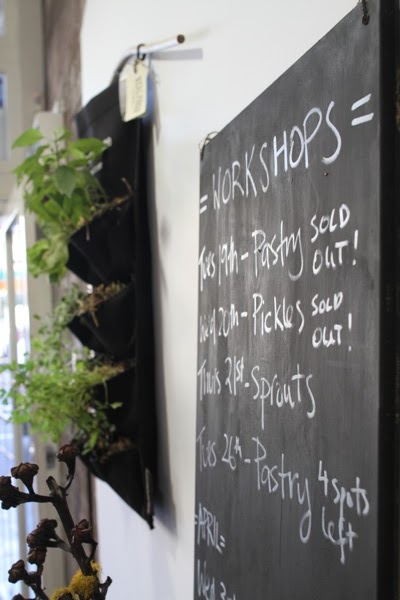 = WORKSHOPS =
Tues 19th - Pastry SOLD OUT!
Wed 20th - Pickles SOLD OUT!
Thurs 21st - Sprouts
Tues 26th - Pastry 4 spots left
= APRIL =
Wed 3rd